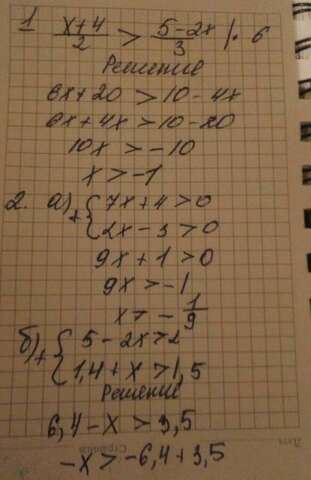 1 (x+4)/2 > (5-2x)/3 | · 6
Решение
6x+20 > 10-4x
6x+4x > 10-20
10x > -10
x > -1
2. а) + { 7x+4 > 0
2x-3 > 0
9x+1 > 0
9x > -1
x > -1/9
б) + { 5-2x > 2
1,4+x > 1,5
Решение
6,4-x > 3,5
-x > -6,4+3,5